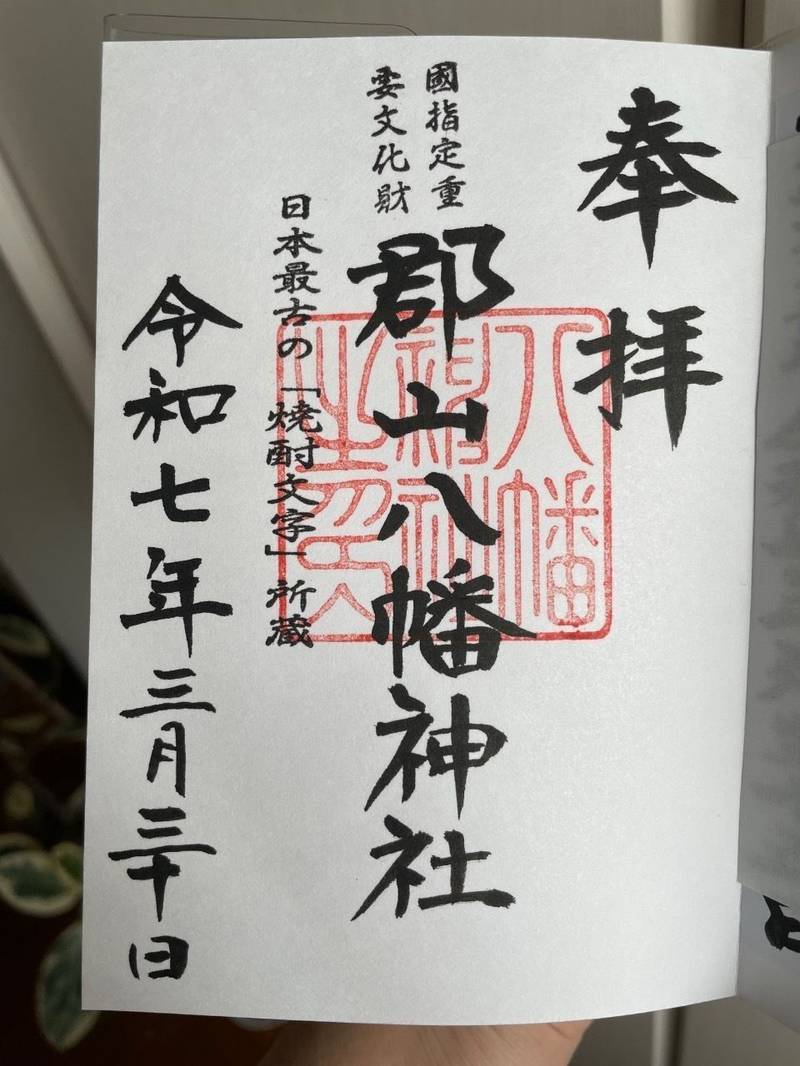 奉拝
國指定重
要文化財
郡山八幡神社
日本最古の「焼酎文字」所蔵
令和七年三月三十日